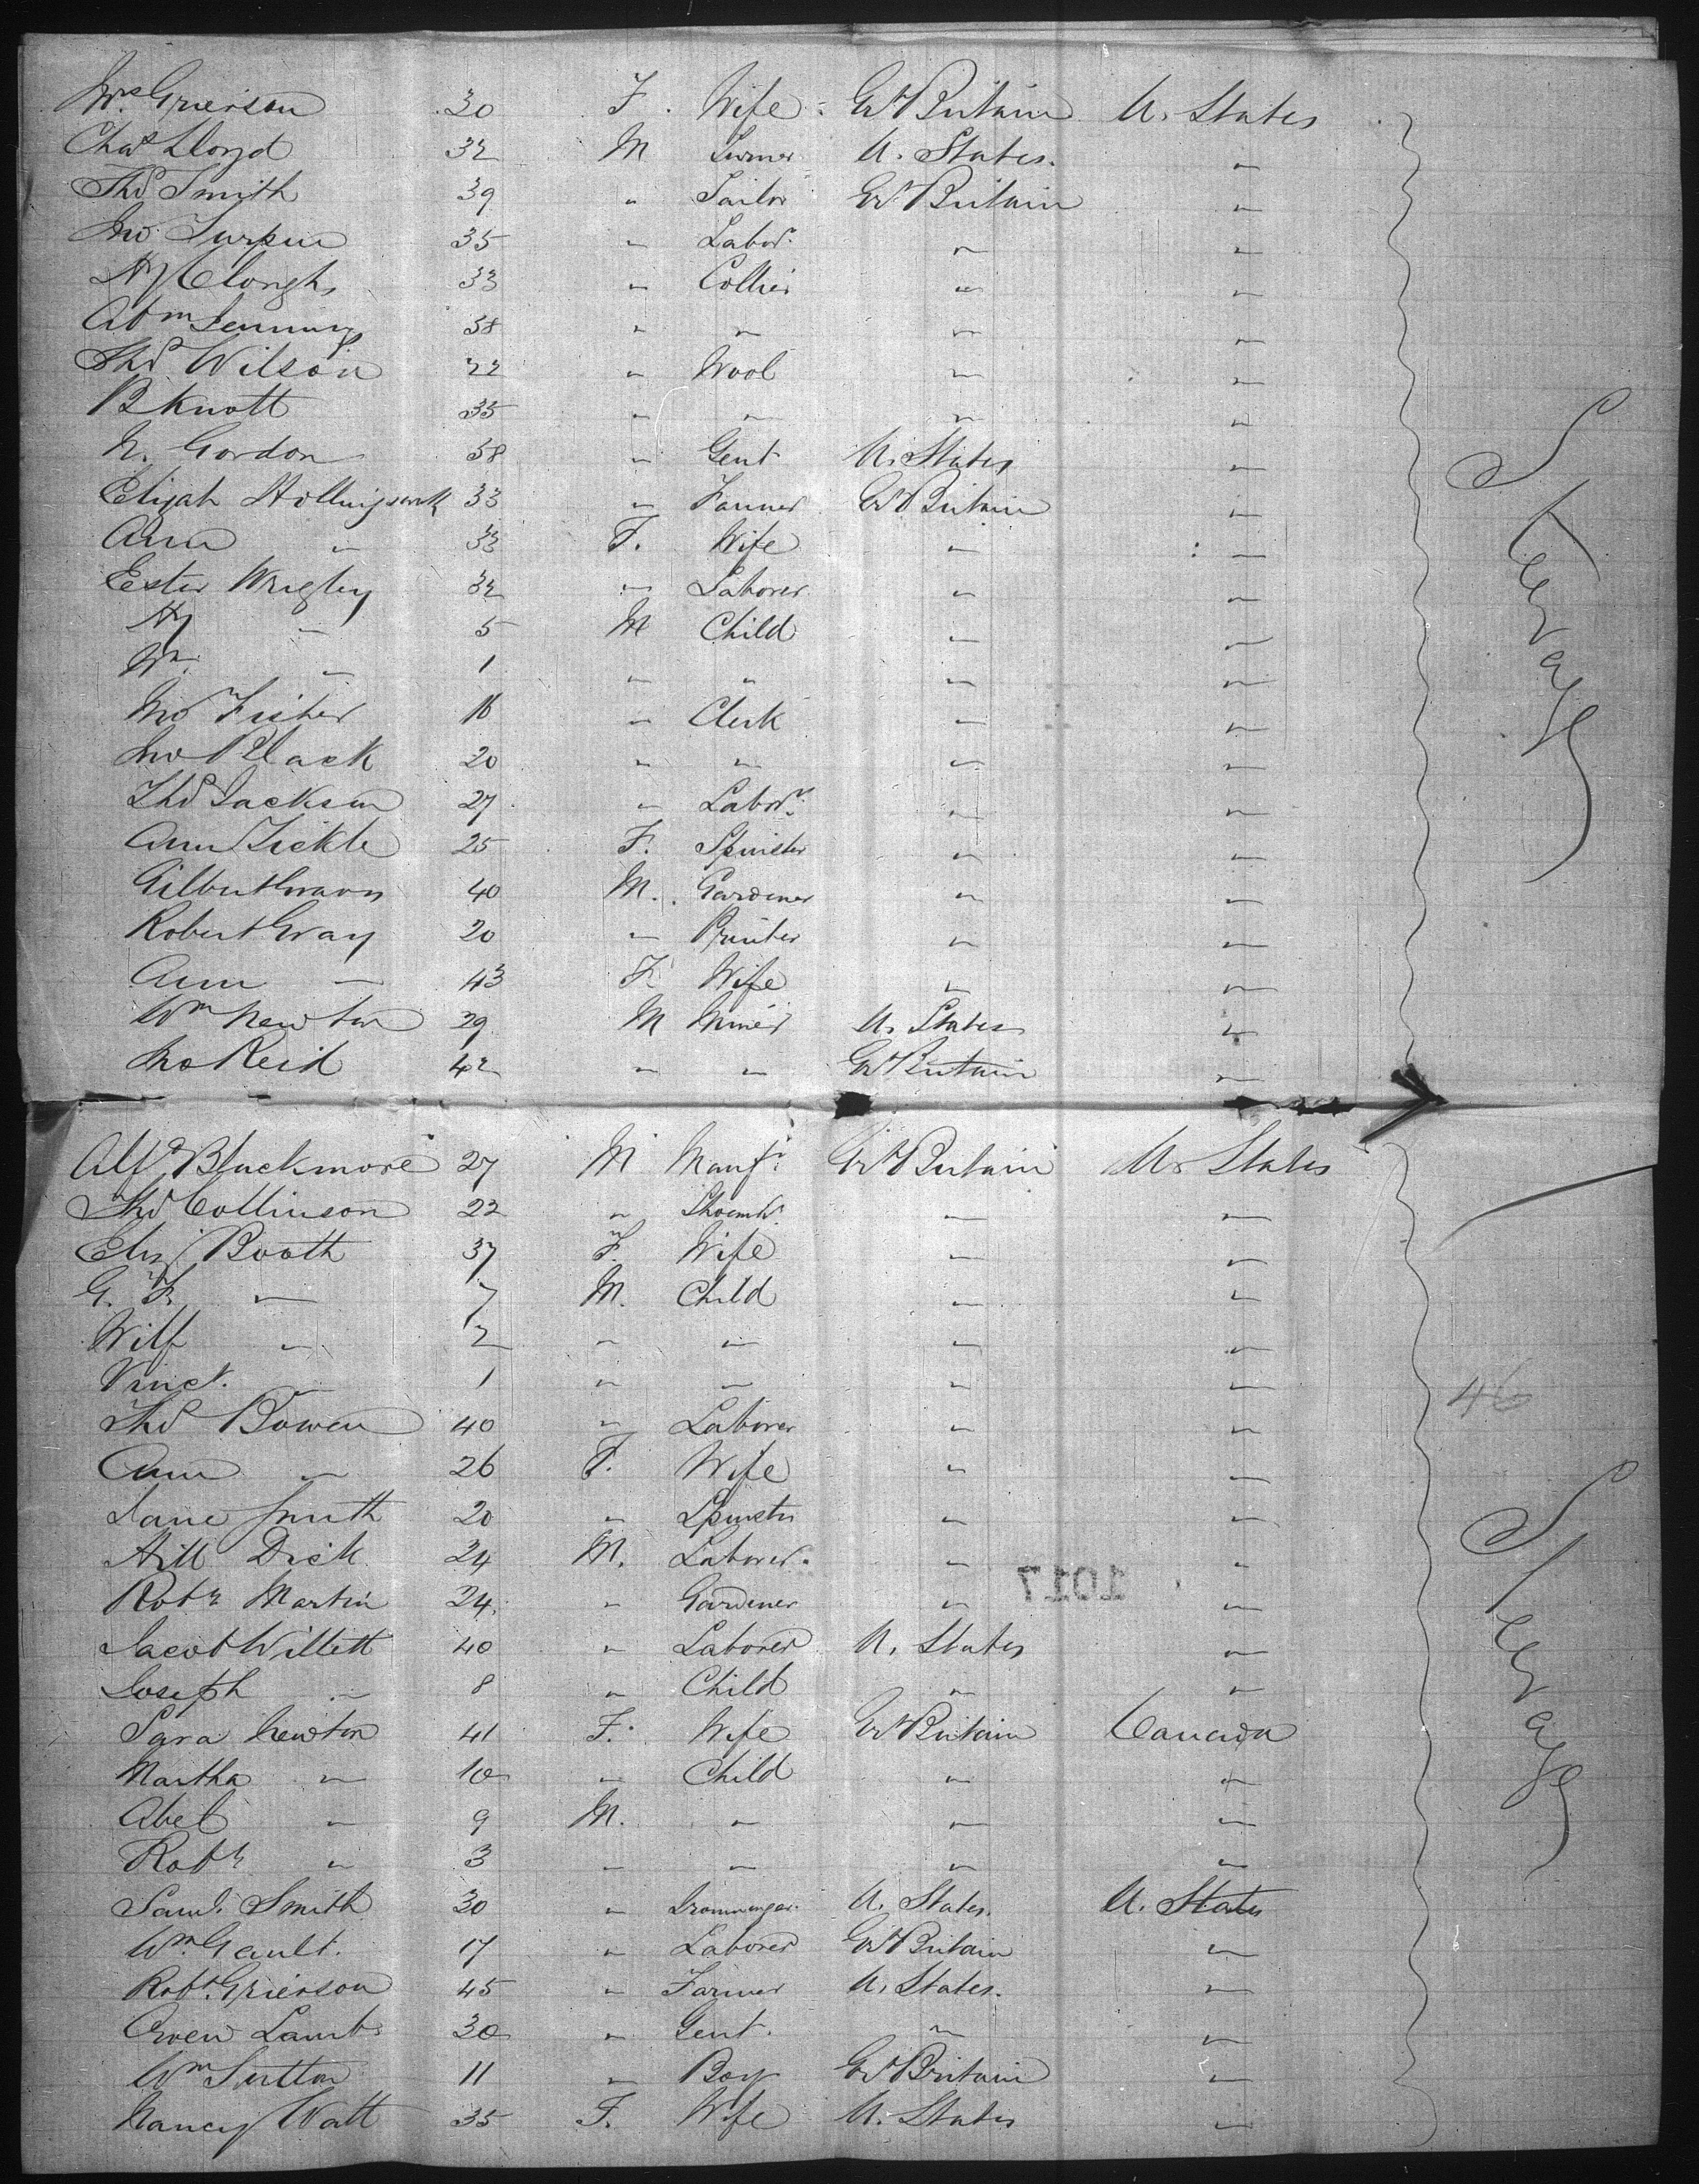 Mrs. Grierson 30 F. Wife Gt Britain U. States
Chas Lloyd 32 M Turner U. States.
Thos Smith 39 " Tailor Gt Britain "
Jno Turpin 35 " Labor. " "
Hy Clough 33 " Collier " "
Abm Jennings 38 " " " "
Thos Wilson 22 " Wool " "
B Knott 35 " " " "
N. Gordon 38 " Gent U. States "
Elijah Hollingswork 33 " Farmer Gt Britain "
Ann " 33 F. Wife " "
Ester Wrigley 32 " Laborer " "
Hy " 5 M Child " "
Wm " 1 " " " "
Jno Fisher 16 " Clerk " "
Jno Black 20 " " " "
Thos Jackson 27 " Labor. " "
Ann Tickle 25 F. Spinster " "
Gilbert 40 M. Gardener " "
Robert Gray 20 " Printer " "
Ann " 43 F. Wife " "
Wm Newton 29 M Miner U. States "
Jno Reid 42 " " Gt Britain "
Steerage
Alfd Blackmore 27 M Manfr. Gt Britain U. States
Thos Collinson 22 " Shoemkr " "
Eliz Booth 37 F. Wife " "
G. F. " 7 M. Child " "
Wilf " 2 " " " "
Vinct. " 1 " " " "
46
Thos Bowen 40 " Laborer " "
Ann " 26 F. Wife " "
Jane Smith 20 " Spinster " "
Hill Dick 24 M. Laborer. " "
1017
Robt Martin 24. " Gardener " "
Jacob Willett 40 " Laborer U. States "
Joseph " 8 " Child " "
Sara Newton 41 F. Wife Gt Britain Canada
Martha " 10 " Child " "
Abel " 9 M. " " "
Robt " 3 " " " "
Saml. Smith 30 " Ironmonger. U. States. U. States
Wm. Gault. 17 " Laborer Gt Britain "
Robt. Grierson 45 " Farmer U. States. "
Owen Lamb 30 " Gent. " "
Wm Sutton 11 " Boy Gt Britain "
Nancy Watt 35 F. Wife U. States "
Steerage